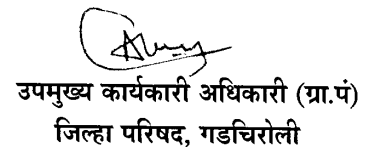 उपमुख्य कार्यकारी अधिकारी (ग्रा.पं)
जिल्हा परिषद, गडचिरोली